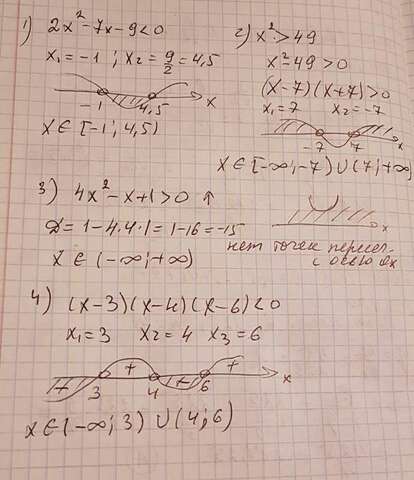 1) 2x² - 7x - 9 < 0
x₁ = -1 ; x₂ = 9/2 = 4,5
-1 4,5 x
x ∈ [-1 ; 4,5)
2) x² > 49
x² - 49 > 0
(x - 7)(x + 7) > 0
x₁ = 7 x₂ = -7
-7 7 x
x ∈ [-∞; -7) ∪ (7; +∞)
3) 4x² - x + 1 > 0 ↑
D = 1 - 4·4·1 = 1 - 16 = -15
x ∈ (-∞; +∞)
x
нет точек пересеч.
с осью Ох
4) (x - 3)(x - 4)(x - 6) < 0
x₁ = 3 x₂ = 4 x₃ = 6
+ +
3 4 6 x
x ∈ (-∞; 3) ∪ (4; 6)